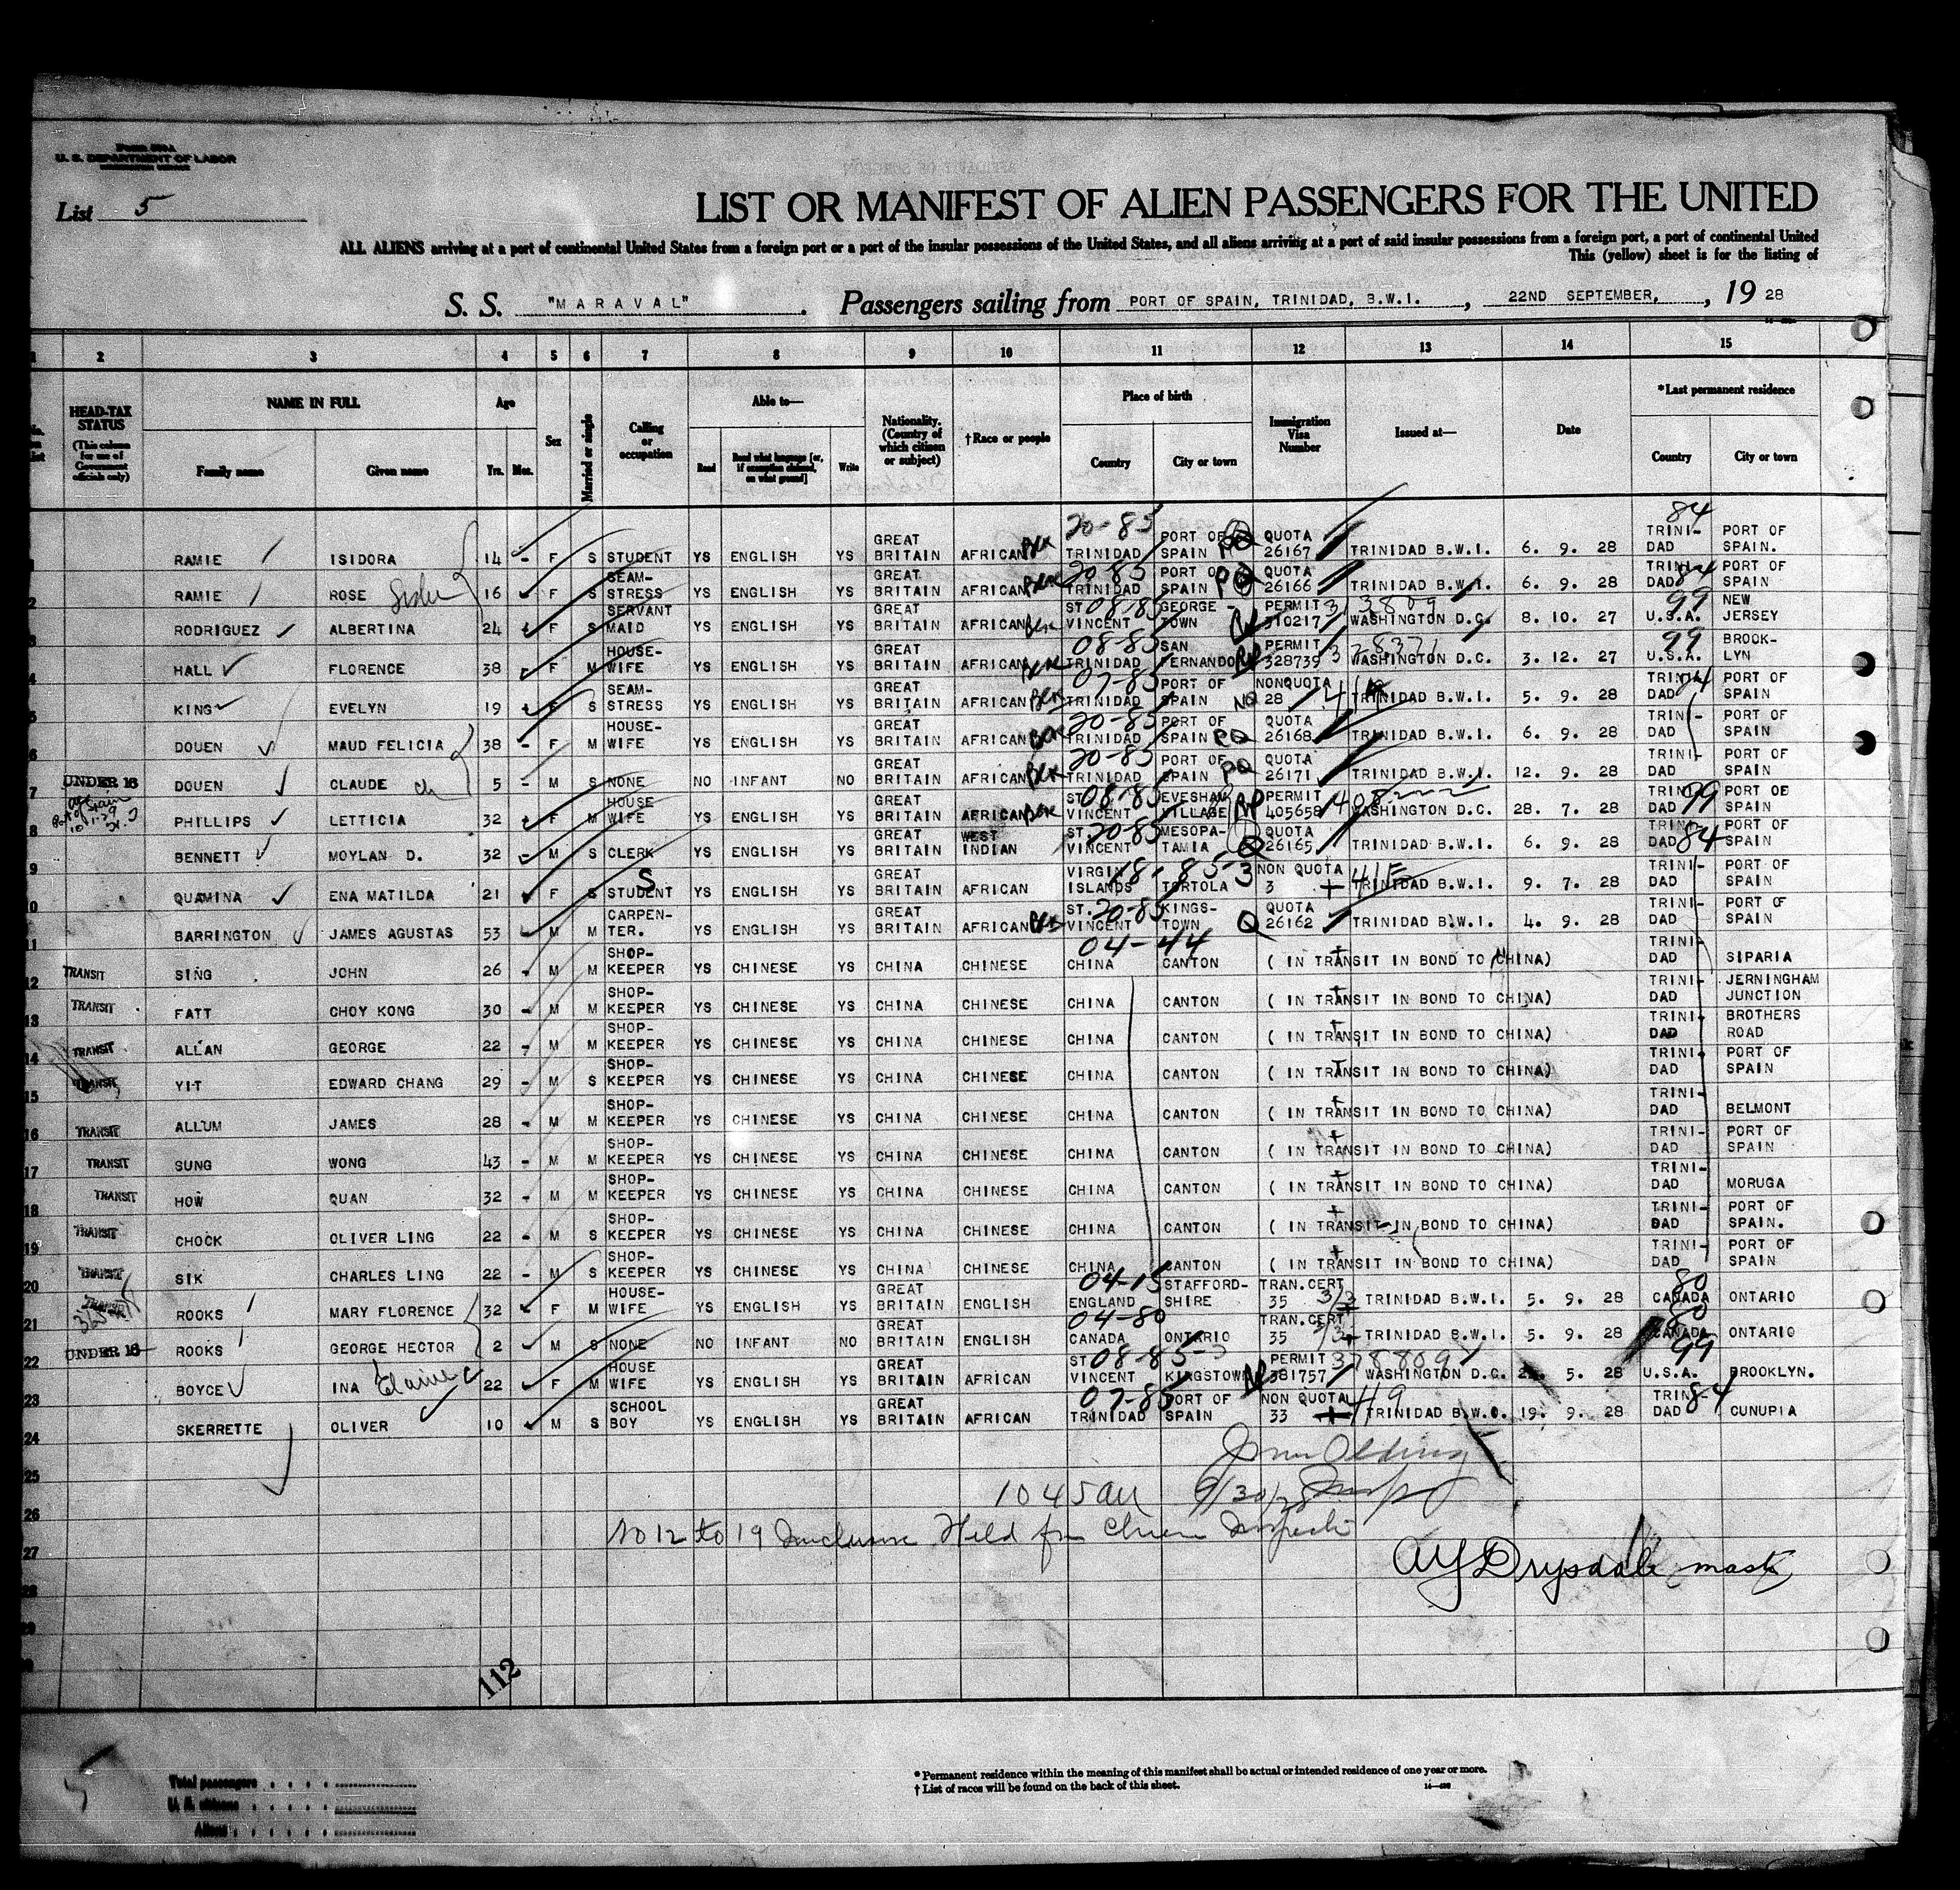 Form 500 A
U. S. DEPARTMENT OF LABOR
List 5
LIST OR MANIFEST OF ALIEN PASSENGERS FOR THE UNITED
ALL ALIENS arriving at a port of continental United States from a foreign port or a port of the insular possessions of the United States, and all aliens arriving at a port of said insular possessions from a foreign port, a port of continental United
This (yellow) sheet is for the listing of
S. S. "MARAVAL". Passengers sailing from PORT OF SPAIN, TRINIDAD, B.W.I., 22ND SEPTEMBER, , 19 28
2 3 4 5 6 7 8 9 10 11 12 13 14 15
HEAD-TAX STATUS (This column for use of Government officials only) NAME IN FULL Family name Given name Age Yrs. Mos. Sex Married or single Calling or occupation Able to— Read Read what language [or, if exemption claimed, on what ground] Write Nationality. (Country of which citizen or subject) †Race or people Place of birth Country City or town Immigration Visa Number Issued at— Date *Last permanent residence Country City or town
1 RAMIE ISIDORA 14 - F S STUDENT YS ENGLISH YS GREAT BRITAIN AFRICAN Blk 20-85 TRINIDAD PORT OF SPAIN PQ QUOTA 26167 TRINIDAD B.W.I. 6. 9. 28 84 TRINI-DAD PORT OF SPAIN.
2 RAMIE ROSE Sister 16 F S SEAM-STRESS YS ENGLISH YS GREAT BRITAIN AFRICAN Blk 20-85 TRINIDAD PORT OF SPAIN PQ QUOTA 26166 TRINIDAD B.W.I. 6. 9. 28 TRINI-DAD 84 PORT OF SPAIN
3 RODRIGUEZ ALBERTINA 24 F S SERVANT MAID YS ENGLISH YS GREAT BRITAIN AFRICAN Blk 08-85 ST VINCENT GEORGE-TOWN PERMIT 310217 WASHINGTON D.C. 8. 10. 27 99 U.S.A. NEW JERSEY
4 HALL FLORENCE 38 F M HOUSE-WIFE YS ENGLISH YS GREAT BRITAIN AFRICAN Blk 08-85 TRINIDAD SAN FERNANDO RP PERMIT 328739 WASHINGTON D.C. 3. 12. 27 99 U.S.A. BROOK-LYN
5 KING EVELYN 19 F S SEAM-STRESS YS ENGLISH YS GREAT BRITAIN AFRICAN Blk 07-85 TRINIDAD PORT OF SPAIN NQ NONQUOTA 28 TRINIDAD B.W.I. 5. 9. 28 TRINI-DAD 84 PORT OF SPAIN
6 DOUEN MAUD FELICIA 38 - F M HOUSE-WIFE YS ENGLISH YS GREAT BRITAIN AFRICAN Blk 20-85 TRINIDAD PORT OF SPAIN PQ QUOTA 26168 TRINIDAD B.W.I. 6. 9. 28 TRINI-DAD PORT OF SPAIN
7 UNDER 16 DOUEN CLAUDE ch 5 - M S NONE NO INFANT NO GREAT BRITAIN AFRICAN Blk 20-85 TRINIDAD PORT OF SPAIN PQ QUOTA 26171 TRINIDAD B.W.I. 12. 9. 28 TRINI-DAD PORT OF SPAIN
8 PHILLIPS LETTICIA 32 F M HOUSE WIFE YS ENGLISH YS GREAT BRITAIN AFRICAN Blk 08-85 ST VINCENT EVESHAM VILLAGE RP PERMIT 405658 WASHINGTON D.C. 28. 7. 28 TRINI-DAD 99 PORT OF SPAIN
9 BENNETT MOYLAN D. 32 - M S CLERK YS ENGLISH YS GREAT BRITAIN WEST INDIAN 20-85 ST. VINCENT MESOPA-TAMIA Q QUOTA 26165 TRINIDAD B.W.I. 6. 9. 28 TRINI-DAD 84 PORT OF SPAIN
10 QUAMINA ENA MATILDA 21 F S STUDENT S YS ENGLISH YS GREAT BRITAIN AFRICAN 18-85-3 VIRGIN ISLANDS TORTOLA NON QUOTA 3 + TRINIDAD B.W.I. 9. 7. 28 TRINI-DAD PORT OF SPAIN
11 BARRINGTON JAMES AGUSTAS 53 M M CARPEN-TER. YS ENGLISH YS GREAT BRITAIN AFRICAN Blk 20-85 ST. VINCENT KINGS-TOWN Q QUOTA 26162 TRINIDAD B.W.I. 4. 9. 28 TRINI-DAD PORT OF SPAIN
12 TRANSIT SING JOHN 26 - M M SHOP-KEEPER YS CHINESE YS CHINA CHINESE 04-44 CHINA CANTON ( IN TRANSIT IN BOND TO CHINA) TRINI-DAD SIPARIA
13 TRANSIT FATT CHOY KONG 30 - M M SHOP-KEEPER YS CHINESE YS CHINA CHINESE CHINA CANTON ( IN TRANSIT IN BOND TO CHINA) TRINI-DAD JERNINGHAM JUNCTION
14 TRANSIT ALLAN GEORGE 22 - M M SHOP-KEEPER YS CHINESE YS CHINA CHINESE CHINA CANTON ( IN TRANSIT IN BOND TO CHINA) TRINI-DAD BROTHERS ROAD
15 TRANSIT YIT EDWARD CHANG 29 - M S SHOP-KEEPER YS CHINESE YS CHINA CHINESE CHINA CANTON ( IN TRANSIT IN BOND TO CHINA) TRINI-DAD PORT OF SPAIN
16 TRANSIT ALLUM JAMES 28 - M M SHOP-KEEPER YS CHINESE YS CHINA CHINESE CHINA CANTON ( IN TRANSIT IN BOND TO CHINA) TRINI-DAD BELMONT
17 TRANSIT SUNG WONG 43 - M M SHOP-KEEPER YS CHINESE YS CHINA CHINESE CHINA CANTON ( IN TRANSIT IN BOND TO CHINA) TRINI-DAD PORT OF SPAIN
18 TRANSIT HOW QUAN 32 - M M SHOP-KEEPER YS CHINESE YS CHINA CHINESE CHINA CANTON ( IN TRANSIT IN BOND TO CHINA) TRINI-DAD MORUGA
19 TRANSIT CHOCK OLIVER LING 22 - M S SHOP-KEEPER YS CHINESE YS CHINA CHINESE CHINA CANTON ( IN TRANSIT IN BOND TO CHINA) TRINI-DAD PORT OF SPAIN.
20 TRANSIT SIK CHARLES LING 22 - M S SHOP-KEEPER YS CHINESE YS CHINA CHINESE CHINA CANTON ( IN TRANSIT IN BOND TO CHINA) TRINI-DAD PORT OF SPAIN
21 TRANSIT ROOKS MARY FLORENCE 32 F M HOUSE-WIFE YS ENGLISH YS GREAT BRITAIN ENGLISH 04-15 ENGLAND STAFFORD-SHIRE TRAN.CERT 35 3/3 TRINIDAD B.W.I. 5. 9. 28 80 CANADA ONTARIO
22 UNDER 16 ROOKS GEORGE HECTOR 2 M S NONE NO INFANT NO GREAT BRITAIN ENGLISH 04-80 CANADA ONTARIO TRAN.CERT 35 TRINIDAD B.W.I. 5. 9. 28 80 CANADA ONTARIO
23 BOYCE INA Elaine 22 F M HOUSE WIFE YS ENGLISH YS GREAT BRITAIN AFRICAN 08-85-3 ST VINCENT KINGSTOWN PERMIT 381757 WASHINGTON D.C. 5. 28 99 U.S.A. BROOKLYN.
24 SKERRETTE OLIVER 10 M S SCHOOL BOY YS ENGLISH YS GREAT BRITAIN AFRICAN 07-85 TRINIDAD PORT OF SPAIN NON QUOTA 33 TRINIDAD B.W.I. 19. 9. 28 TRINI-DAD 84 CUNUPIA
25
1045 am 9/30/28
26
No 12 to 19 Inclusive Held for Chinese
27
AY Drysdale master
28
29
112
Total passengers
U. S. citizens
Aliens
* Permanent residence within the meaning of this manifest shall be actual or intended residence of one year or more.
† List of races will be found on the back of this sheet.